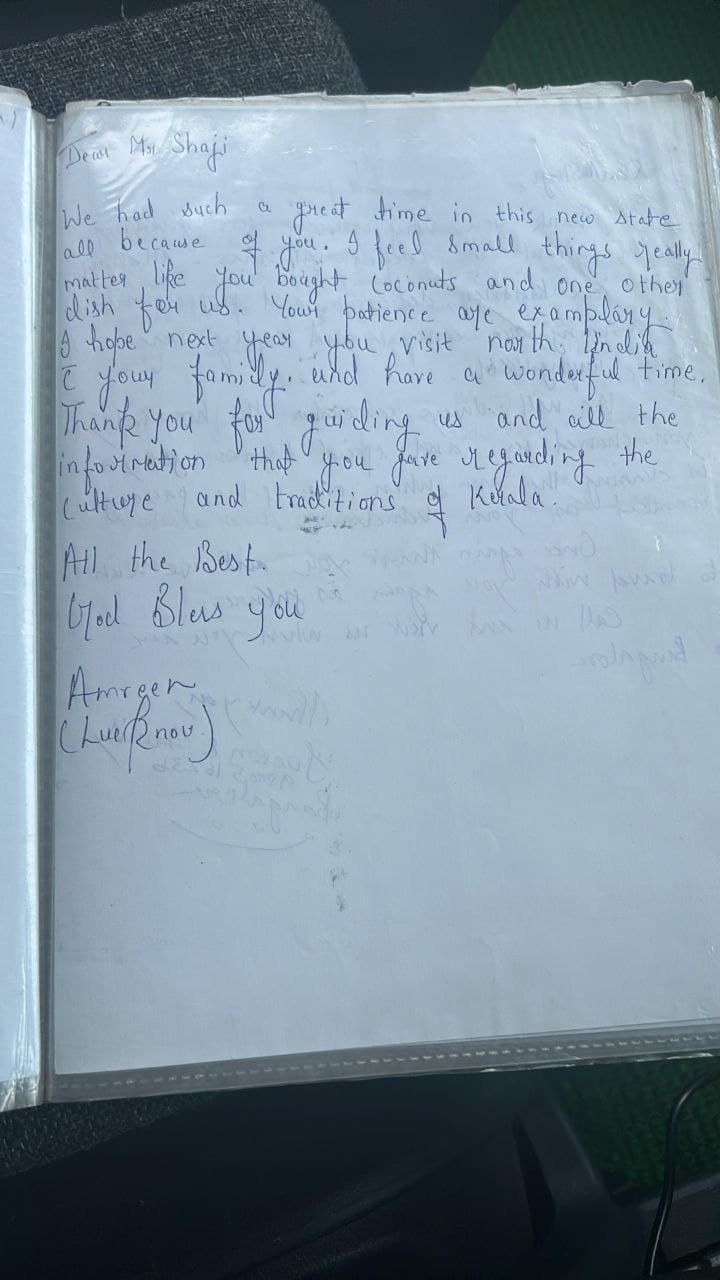 Dear Mr Shaji
We had such a great time in this new state
all because of you. I feel small things really
matter like you bought coconuts and one other
dish for us. Your patience are examplary.
I hope next year you visit north India
c̄ your family. and have a wonderful time.
Thank you for guiding us and all the
information that you gave regarding the
culture and traditions of Kerala.
All the Best.
God Bless you
Amreen
(Lucknow)